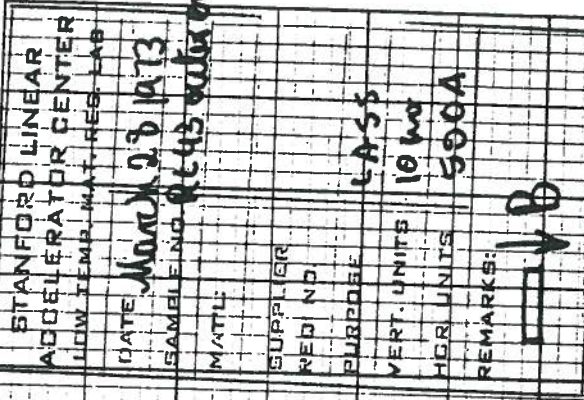 STANFORD LINEAR
ACCELERATOR CENTER
LOW TEMP. MAT. RES. LAB
DATE March 28 1973
SAMPLE NO.
MAT'L:
SUPPLIER
REQ NO.
PURPOSE LASS
VERT. UNITS 10 mv
HOR. UNITS 500A
REMARKS:
B